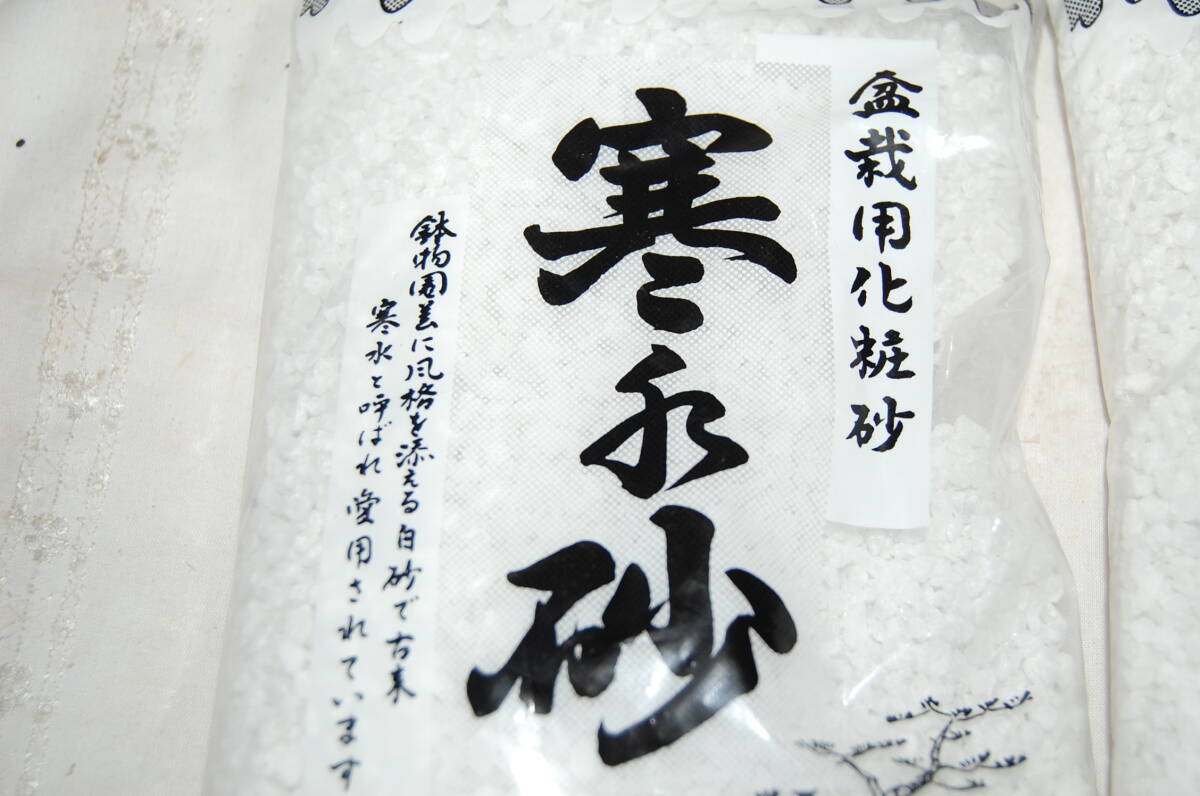 盆栽用化粧砂
寒水砂
鉢物園芸に風格を添える白砂で古来
寒水と呼ばれ愛用されています